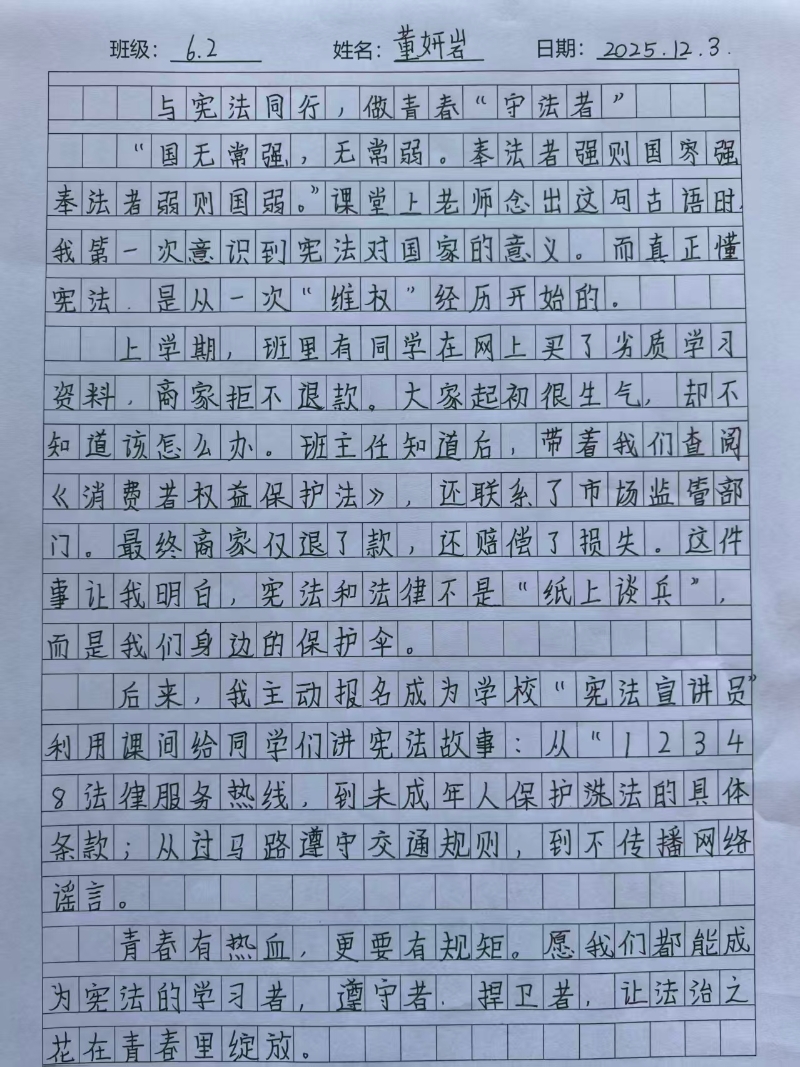 班级: 6.2 姓名: 董妍岩 日期: 2025.12.3.
与宪法同行，做青春“守法者”
“国无常强，无常弱。奉法者强则国家强
奉法者弱则国弱。”课堂上老师念出这句古语时,
我第一次意识到宪法对国家的意义。而真正懂
宪法.是从一次“维权”经历开始的。
上学期，班里有同学在网上买了劣质学习
资料，商家拒不退款。大家起初很生气，却不
知道该怎么办。班主任知道后，带着我们查阅
《消费者权益保护法》，还联系了市场监管部
门。最终商家仅退了款，还赔偿了损失。这件
事让我明白，宪法和法律不是“纸上谈兵”，
而是我们身边的保护伞。
后来，我主动报名成为学校“宪法宣讲员”
利用课间给同学们讲宪法故事：从“1234
8法律服务热线，到未成年人保护法的具体
条款；从过马路遵守交通规则，到不传播网络
谣言。
青春有热血，更要有规矩。愿我们都能成
为宪法的学习者，遵守者.捍卫者，让法治之
花在青春里绽放。